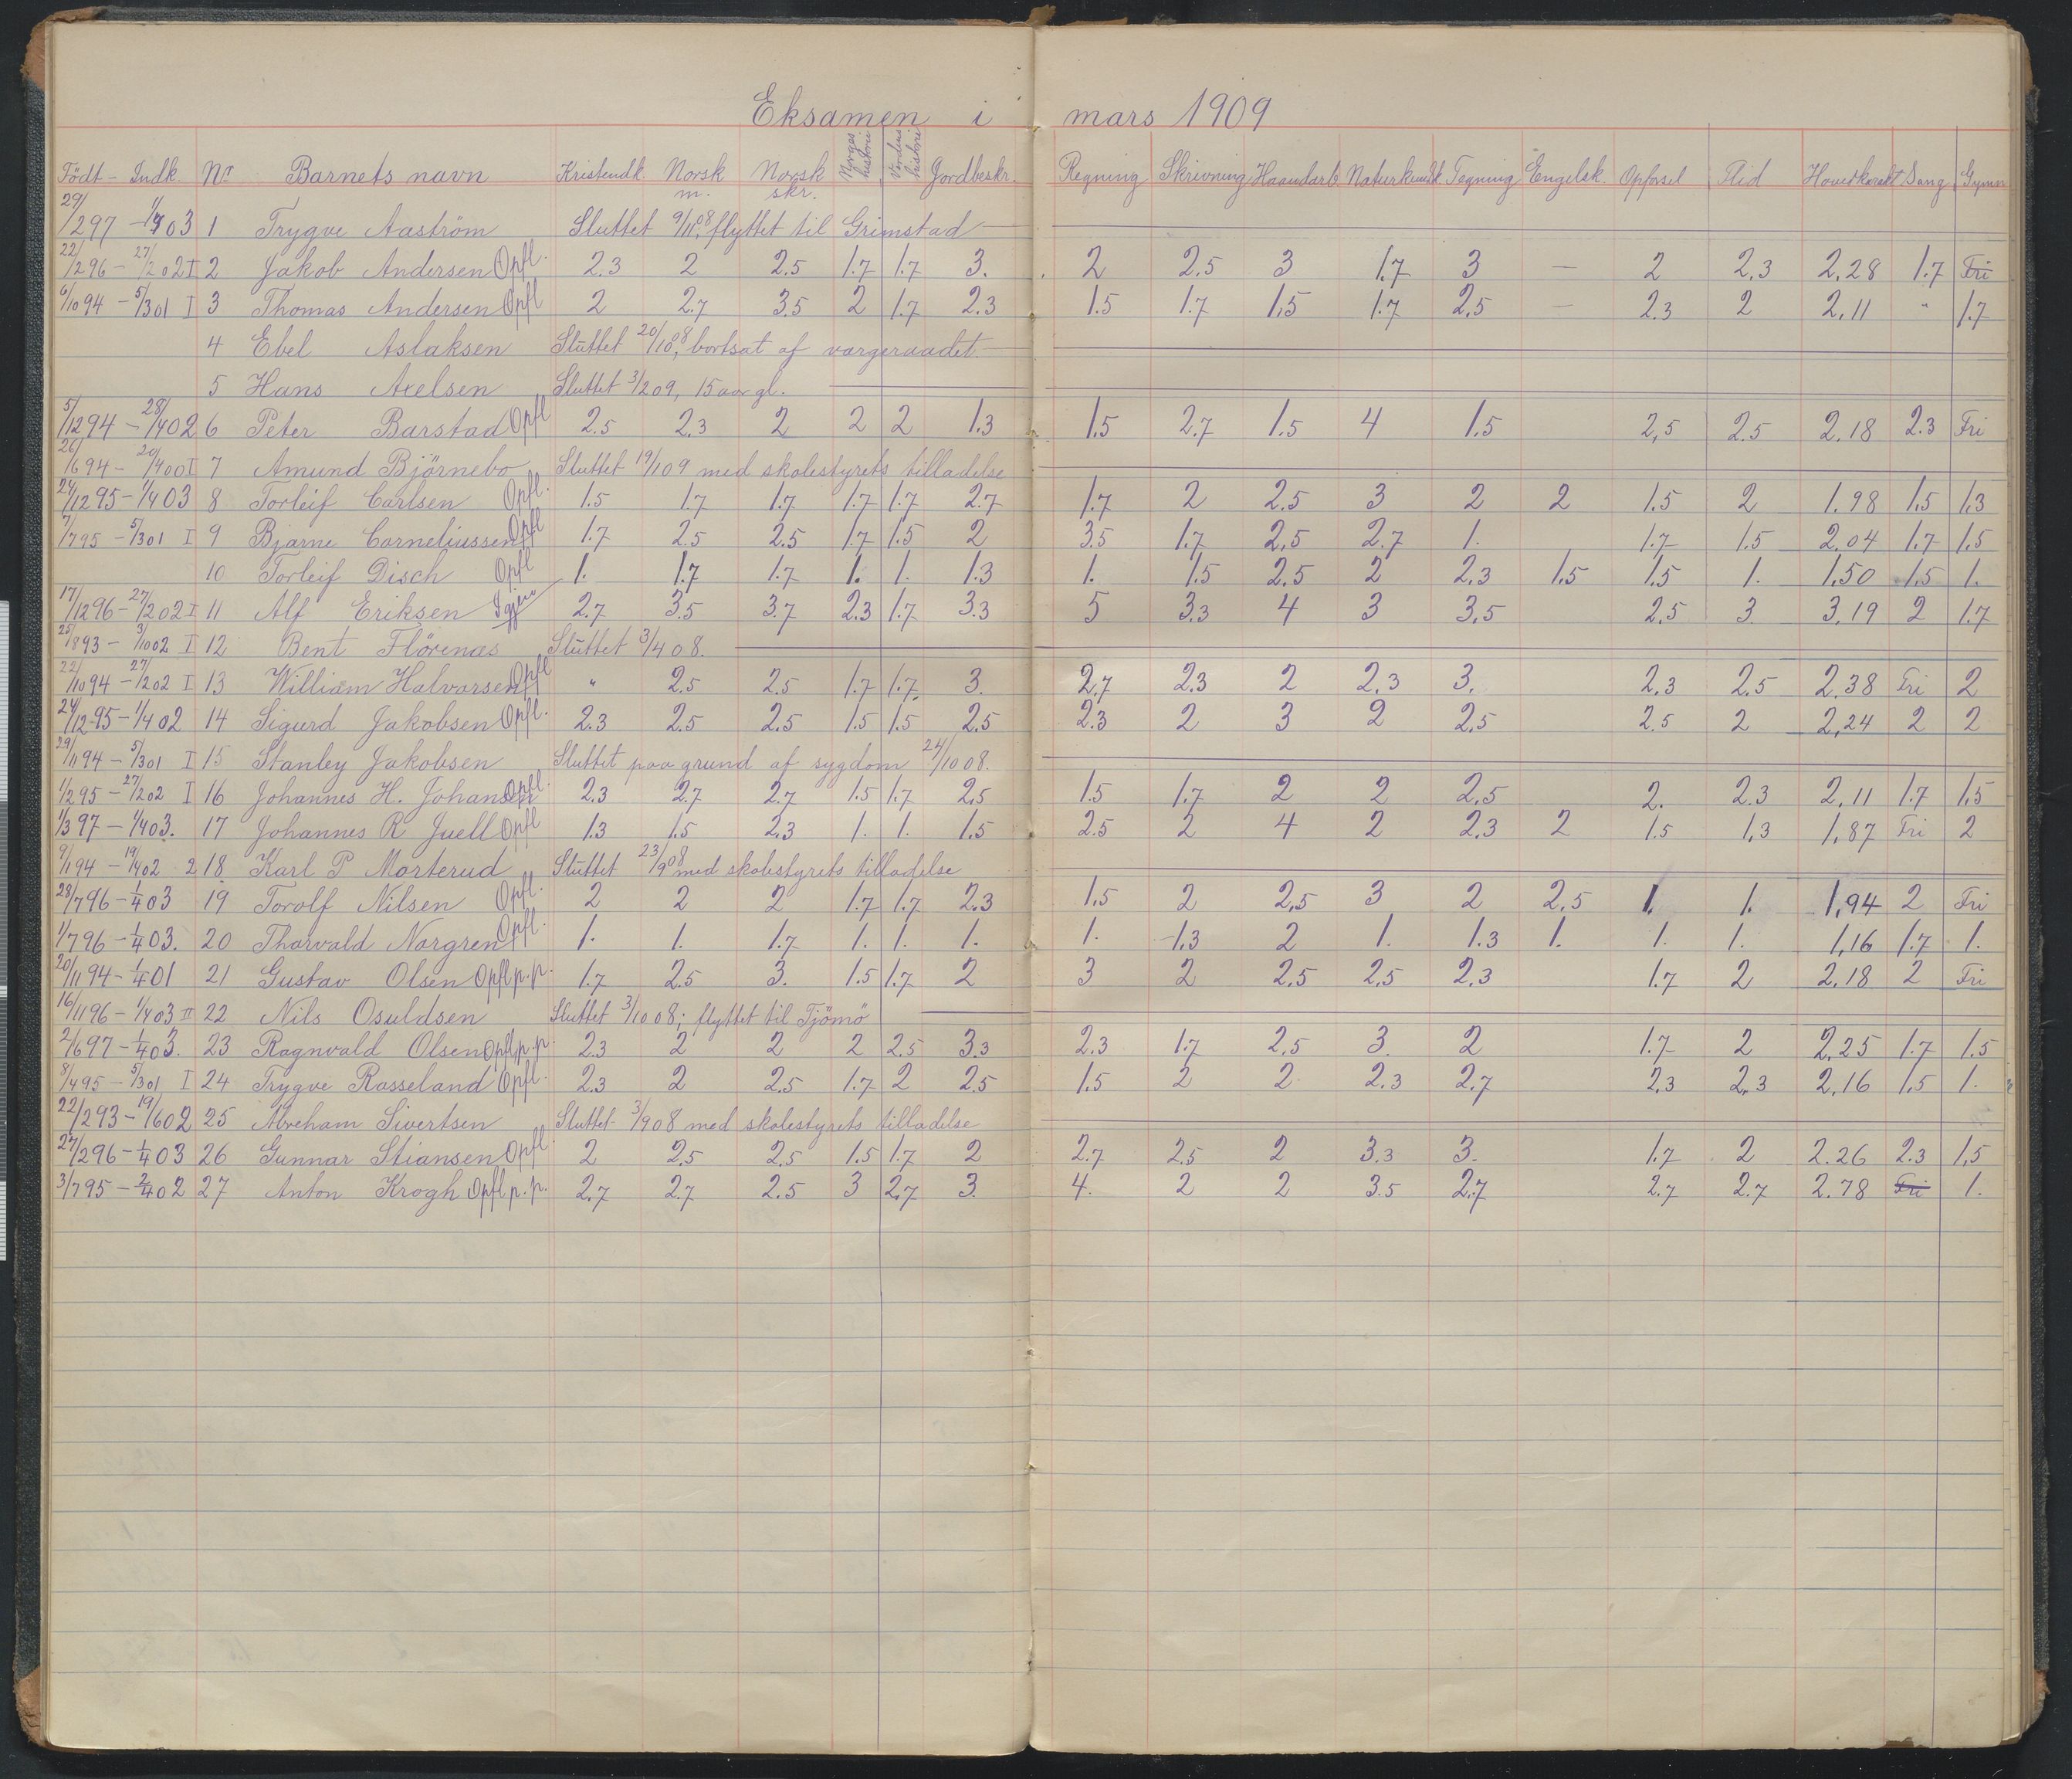 Eksamen i mars 1909
Födt - Indk. Nr Barnets navn Kristendk. Norsk m. Norsk skr. Norges historie Verdens historie Jordbeskr. Regning Skrivning Haandarb. Naturkundsk. Tegning Engelsk. Opførsel Flid Hovedkarakt Sang Gymn
29/297 - 1/403 1 Trygve Aaström Sluttet 9/11 08, flyttet til Grimstad
22/296 - 27/202 I 2 Jakob Andersen Opfl. 2.3 2 2.5 1.7 1.7 3. 2 2.5 3 1.7 3 — 2 2.3 2,28 1.7 Fri
6/1094 - 5/301 I 3 Thomas Andersen Opfl 2 2.7 3.5 2 1.7 2.3 1.5 1.7 1,5 1.7 2,5 — 2.3 2 2,11 " 1.7
4 Ebel Aslaksen Sluttet 20/10 08, bortsat af vergeraadet.
5 Hans Axelsen Sluttet 3/209, 15 aar gl.
5/1294 - 28/402 6 Peter Barstad Opfl 2.5 2.3 2 2 2 1.3 1.5 2.7 1.5 4 1.5 2,5 2.5 2.18 2.3 Fri
26/694 - 20/400 I 7 Amund Björnebo Sluttet 19/109 med skolestyrets tilladelse
24/1295 - 1/403 8 Torleif Carlsen Opfl. 1.5 1.7 1.7 1.7 1.7 2.7 1.7 2 2.5 3 2 2 1.5 2 1.98 1,5 1,3
7/795 - 5/301 I 9 Bjarne Corneliussen Opfl 1.7 2.5 2.5 1.7 1.5 2 3.5 1.7 2,5 2.7 1. 1.7 1.5 2,04 1.7 1.5
10 Torleif Disch Opfl 1. 1.7 1.7 1. 1. 1.3 1. 1.5 2.5 2 2,3 1,5 1,5 1. 1,50 1,5 1.
17/1296 - 27/202 I 11 Alf Eriksen Igjen 2.7 3.5 3.7 2.3 1.7 3.3 5 3.3 4 3 3,5 2.5 3 3,19 2 1.7
25/893 - 3/1002 I 12 Bent Flörenas Sluttet 3/408.
22/1094 - 27/202 I 13 William Halvorsen Opfl " 2.5 2.5 1.7 1.7 3. 2.7 2.3 2 2,3 3. 2,3 2.5 2,38 Fri 2
24/1295 - 1/402 14 Sigurd Jakobsen Opfl. 2.3 2.5 2.5 1.5 1.5 2.5 2.3 2 3 2 2,5 2.5 2 2,24 2 2
29/1194 - 5/301 I 15 Stanley Jakobsen Sluttet paa grund af sygdom 24/1008.
1/295 - 27/202 I 16 Johannes H. Johansen Opfl. 2.3 2.7 2.7 1.5 1.7 2,5 1.5 1.7 2 2 2,5 2. 2.3 2,11 1.7 1,5
1/397 - 1/403. 17 Johannes R Juell Opfl 1.3 1.5 2.3 1. 1. 1.5 2.5 2 4 2 2,3 2 1.5 1,3 1,87 Fri 2
9/194 - 19/402 2 18 Karl P Morterud Sluttet 23/9 08 med skolestyrets tilladelse
28/796 - 1/403 19 Torolf Nilsen Opfl. 2 2 2 1.7 1.7 2.3 1,5 2 2,5 3 2 2,5 1. 1. 1,94 2 Fri
1/796 - 1/403. 20 Thorvald Norgren Opfl. 1. 1. 1.7 1. 1. 1. 1. 1,3 2 1. 1.3 1. 1. 1. 1,16 1.7 1.
20/1194 - 1/401 21 Gustav Olsen Opfl p.p. 1.7 2.5 3. 1.5 1.7 2 3 2 2,5 2,5 2.3 1.7 2 2,18 2 Fri
16/1196 - 1/403 II 22 Nils Osuldsen Sluttet 3/1008; flyttet til Tjömö
2/697 - 1/403. 23 Ragnvald Olsen Opfl p.p. 2.3 2 2 2 2.5 3.3 2.3 1.7 2,5 3. 2 1.7 2 2,25 1.7 1.5
8/495 - 5/301 I 24 Trygve Rosseland Opfl. 2.3 2 2.5 1.7 2 2.5 1,5 2 2 2.3 2.7 2,3 2,3 2,16 1,5 1.
22/293 - 19/602 25 Abreham Sivertsen Sluttet 3/908 med skolestyrets tilladelse
27/296 - 1/403 26 Gunnar Stiansen Opfl. 2 2,5 2,5 1.5 1.7 2 2.7 2.5 2 3.3 3. 1.7 2 2.26 2.3 1,5
3/795 - 2/402 27 Anton Krogh Opfl p.p. 2,7 2.7 2.5 3 2,7 3. 4. 2 2 3.5 2.7 2.7 2.7 2.78 Fri 1.